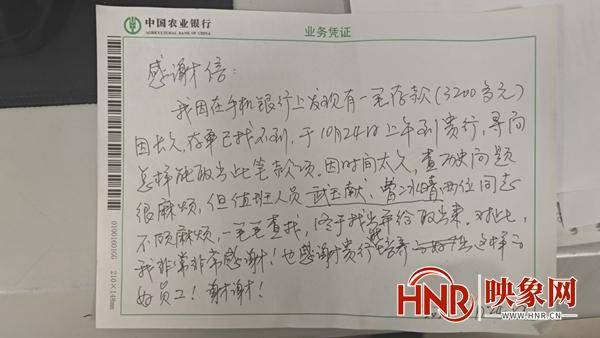 中国农业银行
AGRICULTURAL BANK OF CHINA
业务凭证
感谢信：
我因在手机银行上发现有一笔存款（3200多元）
因长久，存单已找不到，于10月24日上午到贵行，寻问
怎样能取出此笔款项。因时间太久，查历史问题
很麻烦，但值班人员武玉献、曹冰晴两位同志
不顾麻烦，一笔笔查找，终于找出并给取出来。对此，
我非常非常感谢！也感谢贵行培养 这样的
好员工！谢谢！
0100100166 210×148mm
HNR 映象网
WWW.HNR.CN